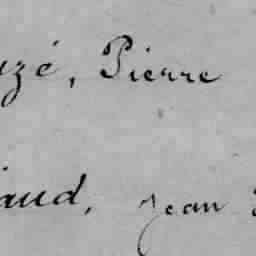 uzé, Pierre
iaud, Jean